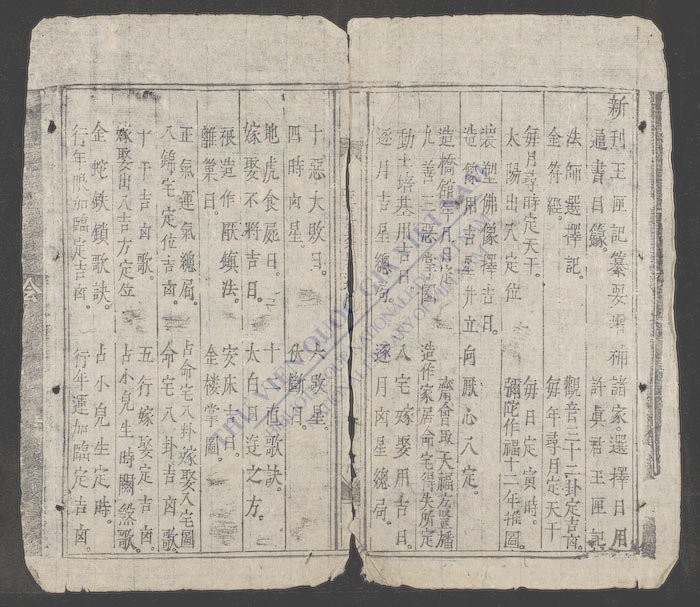 新刊玉匣記纂要增補諸家選擇日用
通書目錄。 許真君玉匣記
法師選擇記。 觀音三十二卦定吉凶。
金符經。 每年尋月定天干
每月尋時定天干。 每日定寅時。
太陽出入定位 彌陀作福十二年推圖。
裝塑佛像擇吉日。
造 用吉星并立向 厭心入定。
造橋 月日 齋會取天福 豎旛
九善三惡掌圖 造作家居命宅得失所定
動土培基用吉日 八宅嫁娶用吉日。
逐月吉星總局。 逐月凶星總局。
十惡大敗日。 六 星。
四時凶星。 伏斷日。
地虎食屍日。 十 直歌訣。
嫁娶不將吉日。 太白日遊之方。
張造作厭鎮法。 安床吉日。
離巢日。 金樓掌圖。
正氣運氣總局。 占命宅八卦嫁娶入宅圖
八錦宅定位吉凶。 命宅八卦吉凶歌。
十干吉凶歌。 五行嫁娶定吉凶。
嫁娶出入吉方定位 占小兒生時關煞歌。
金蛇鉄鎖歌訣。 占小兒生定時。
行年眼加臨定吉凶。 行年運加臨定吉凶。
THƯ VIỆN QUỐC GIA VIỆT NAM
BIBLIOTHÈQUE NATIONALE DU VIETNAM
NATIONAL LIBRARY OF VIETNAM